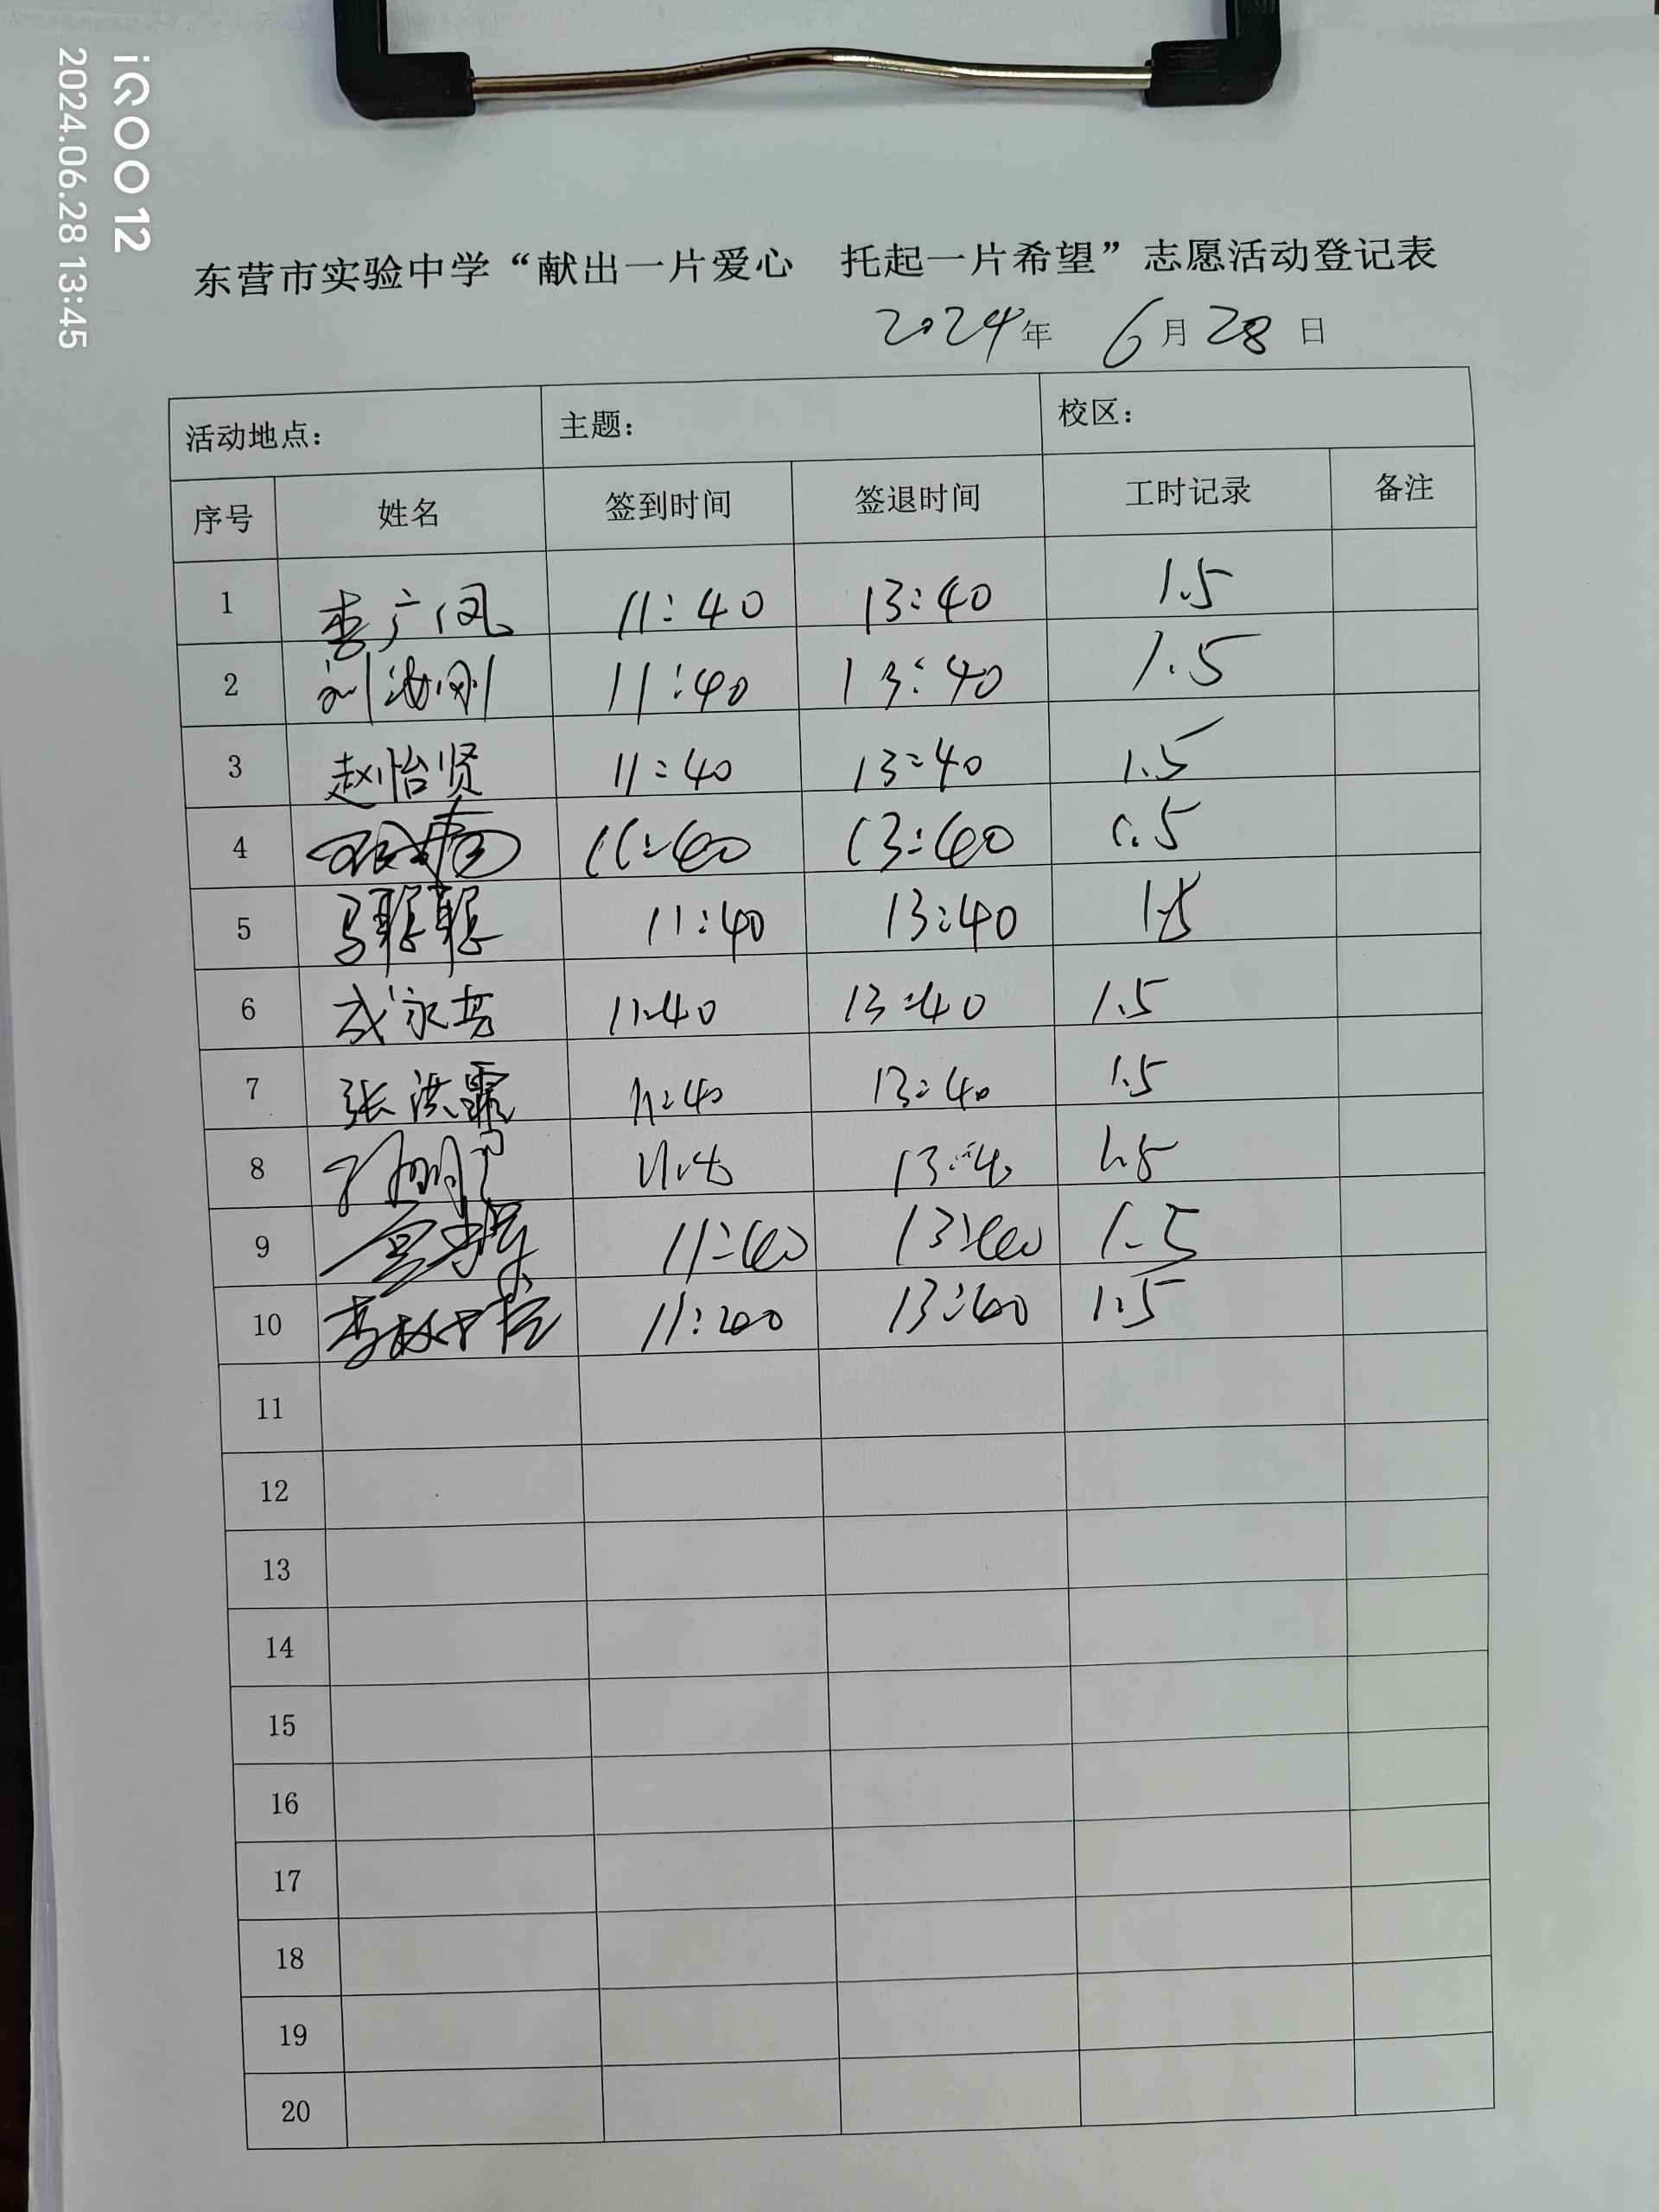 iQOO 12
2024.06.28 13:45
东营市实验中学“献出一片爱心 托起一片希望”志愿活动登记表
2024年 6月28日
活动地点: 主题: 校区:
序号 姓名 签到时间 签退时间 工时记录 备注
1 李广凤 11:40 13:40 1.5
2 刘海刚 11:40 13:40 1.5
3 赵怡贤 11:40 13:40 1.5
4 11:40 13:40 1.5
5 马聪聪 11:40 13:40 1.5
6 成永 11:40 13:40 1.5
7 张洪霞 11:40 13:40 1.5
8 11:40 13:40 1.5
9 11:40 13:40 1.5
10 李 11:40 13:40 1.5
11
12
13
14
15
16
17
18
19
20